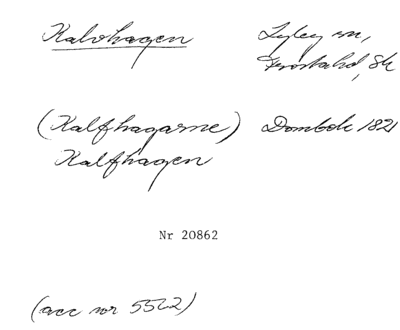 Kalvhagen Lyby sn,
Frostahd, Sk
(Kalfhagarne) Dombok 1821
Kalfhagen
Nr 20862
(acc nr 5562)